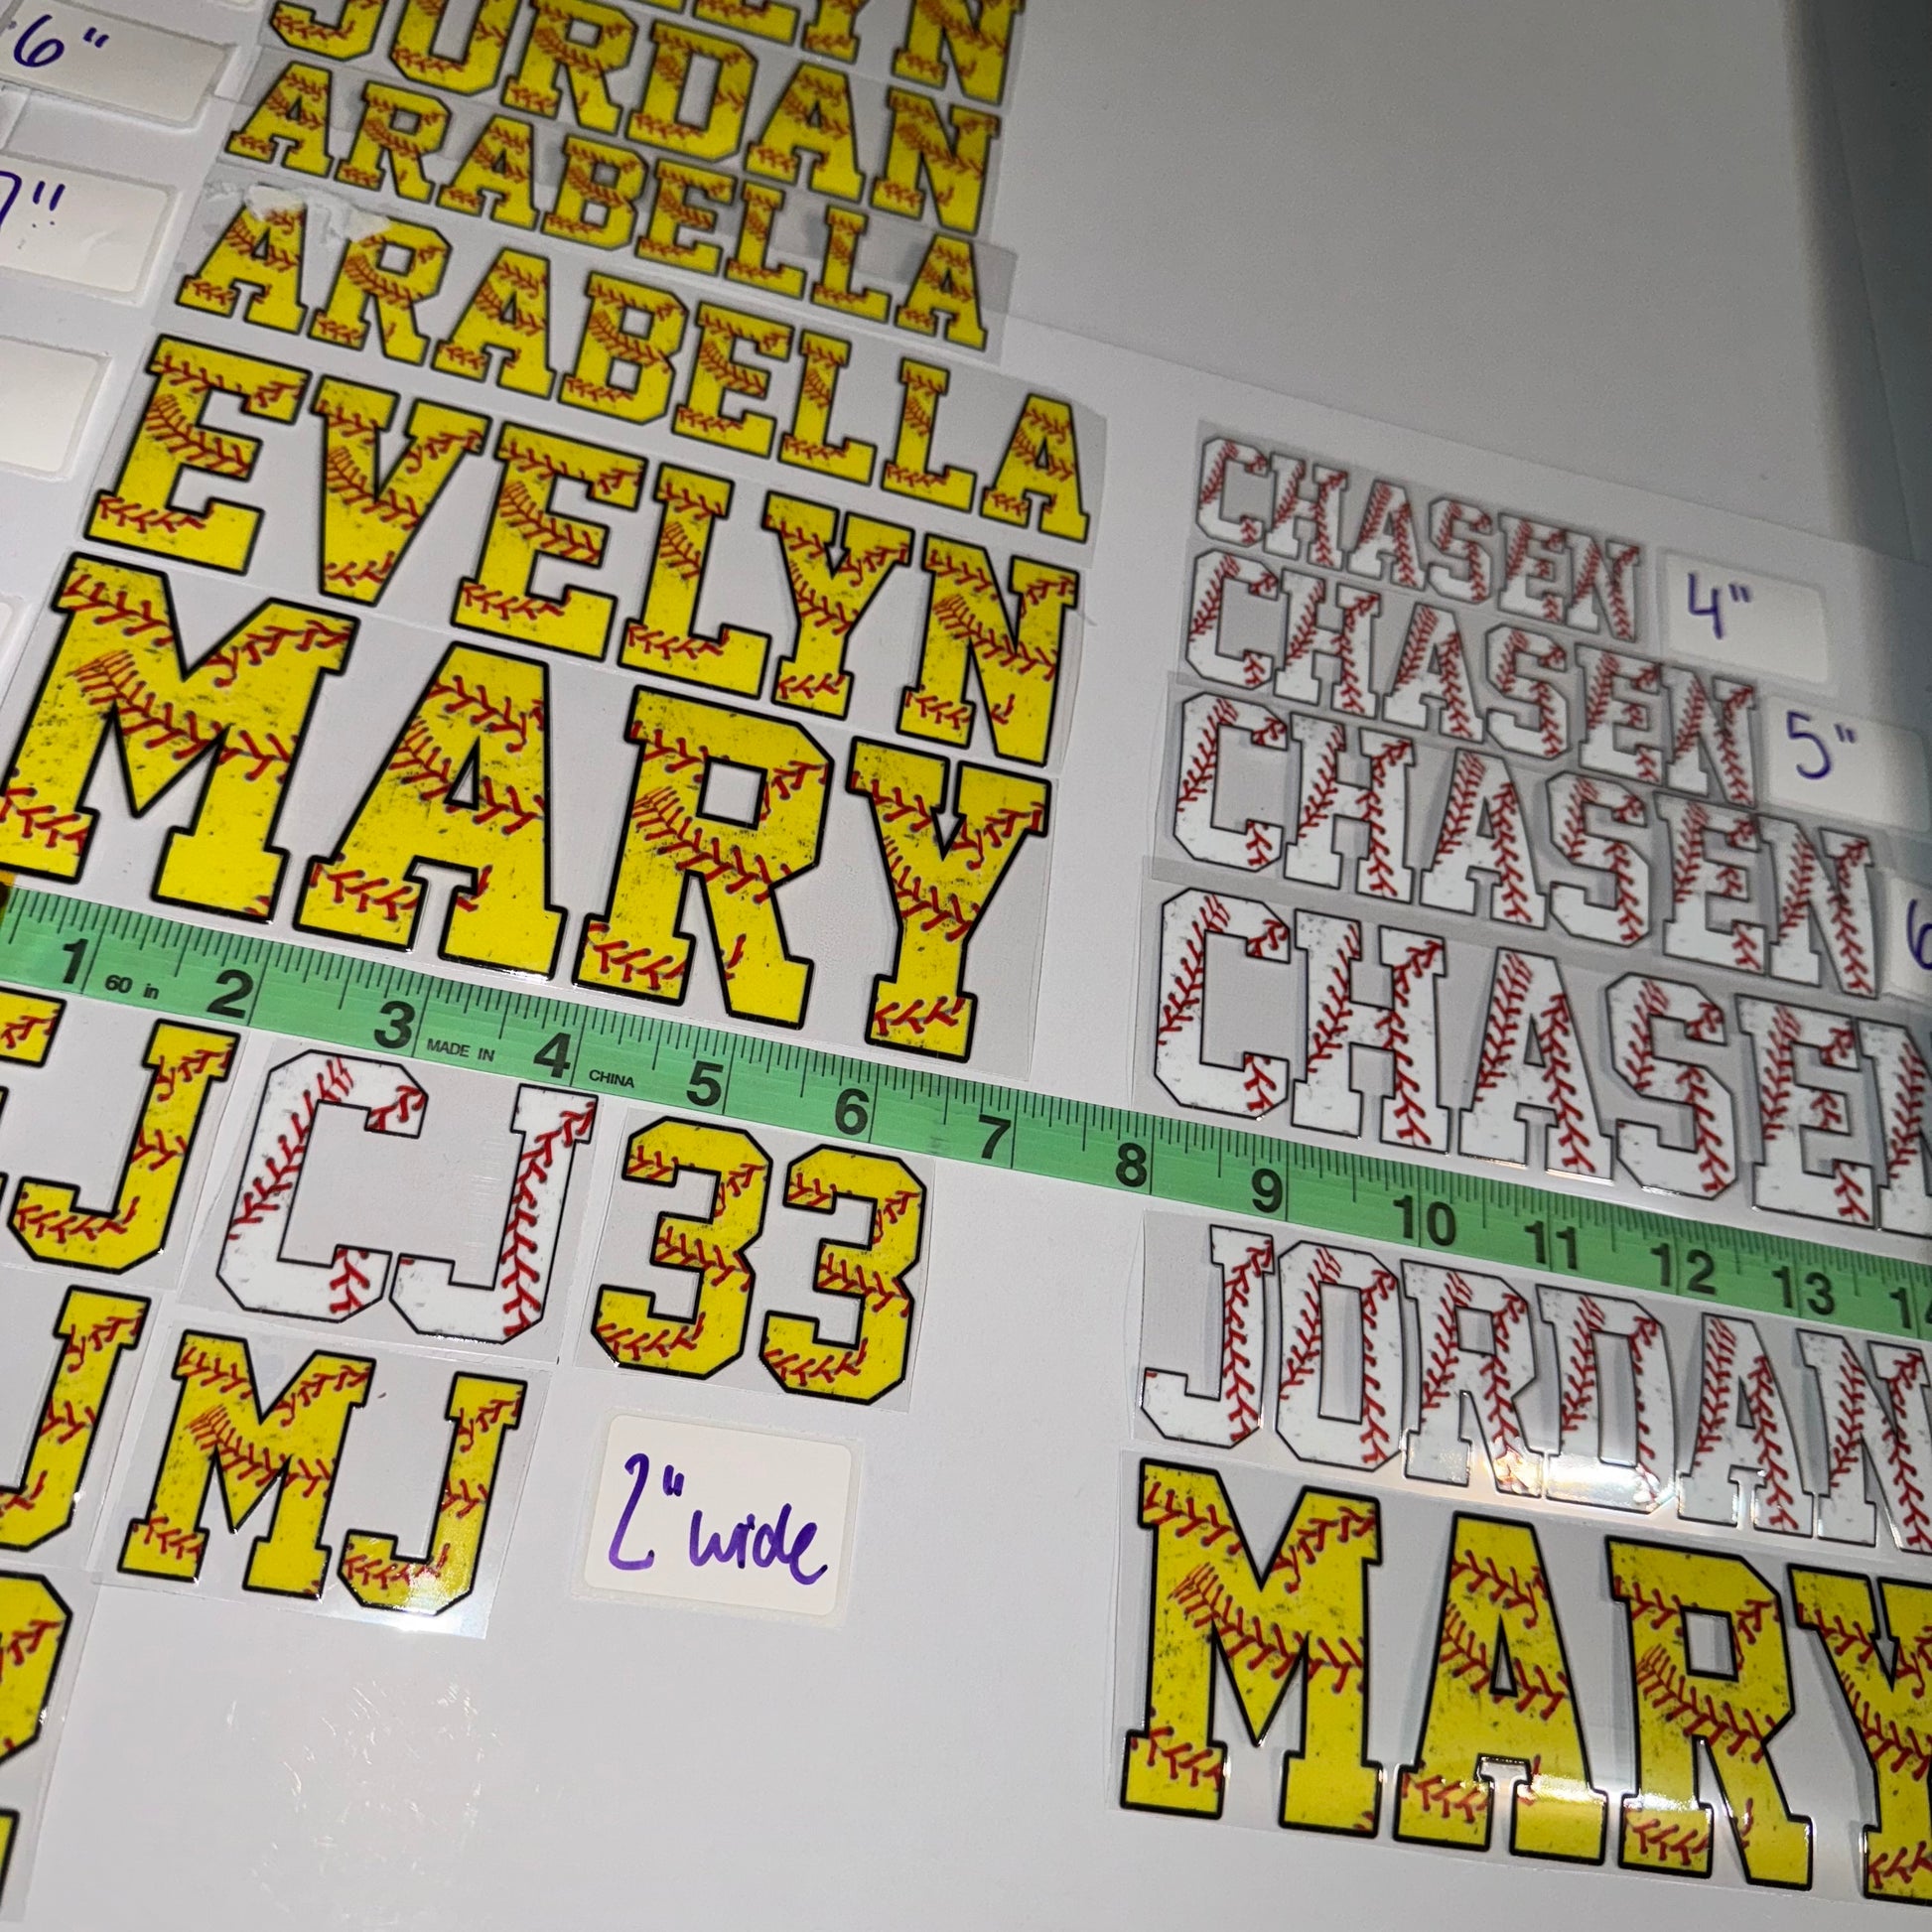 6"
JORDAN
ARABELLA
7"
ARABELLA
EVELYN
MARY
CHASEN
4"
CHASEN
5"
CHASEN
6
CHASEN
1 60 in 2 3 MADE IN 4 CHINA 5 6 7 8 9 10 11 12 13 1
J
CJ
33
J
MJ
2" wide
JORDAN
MARY